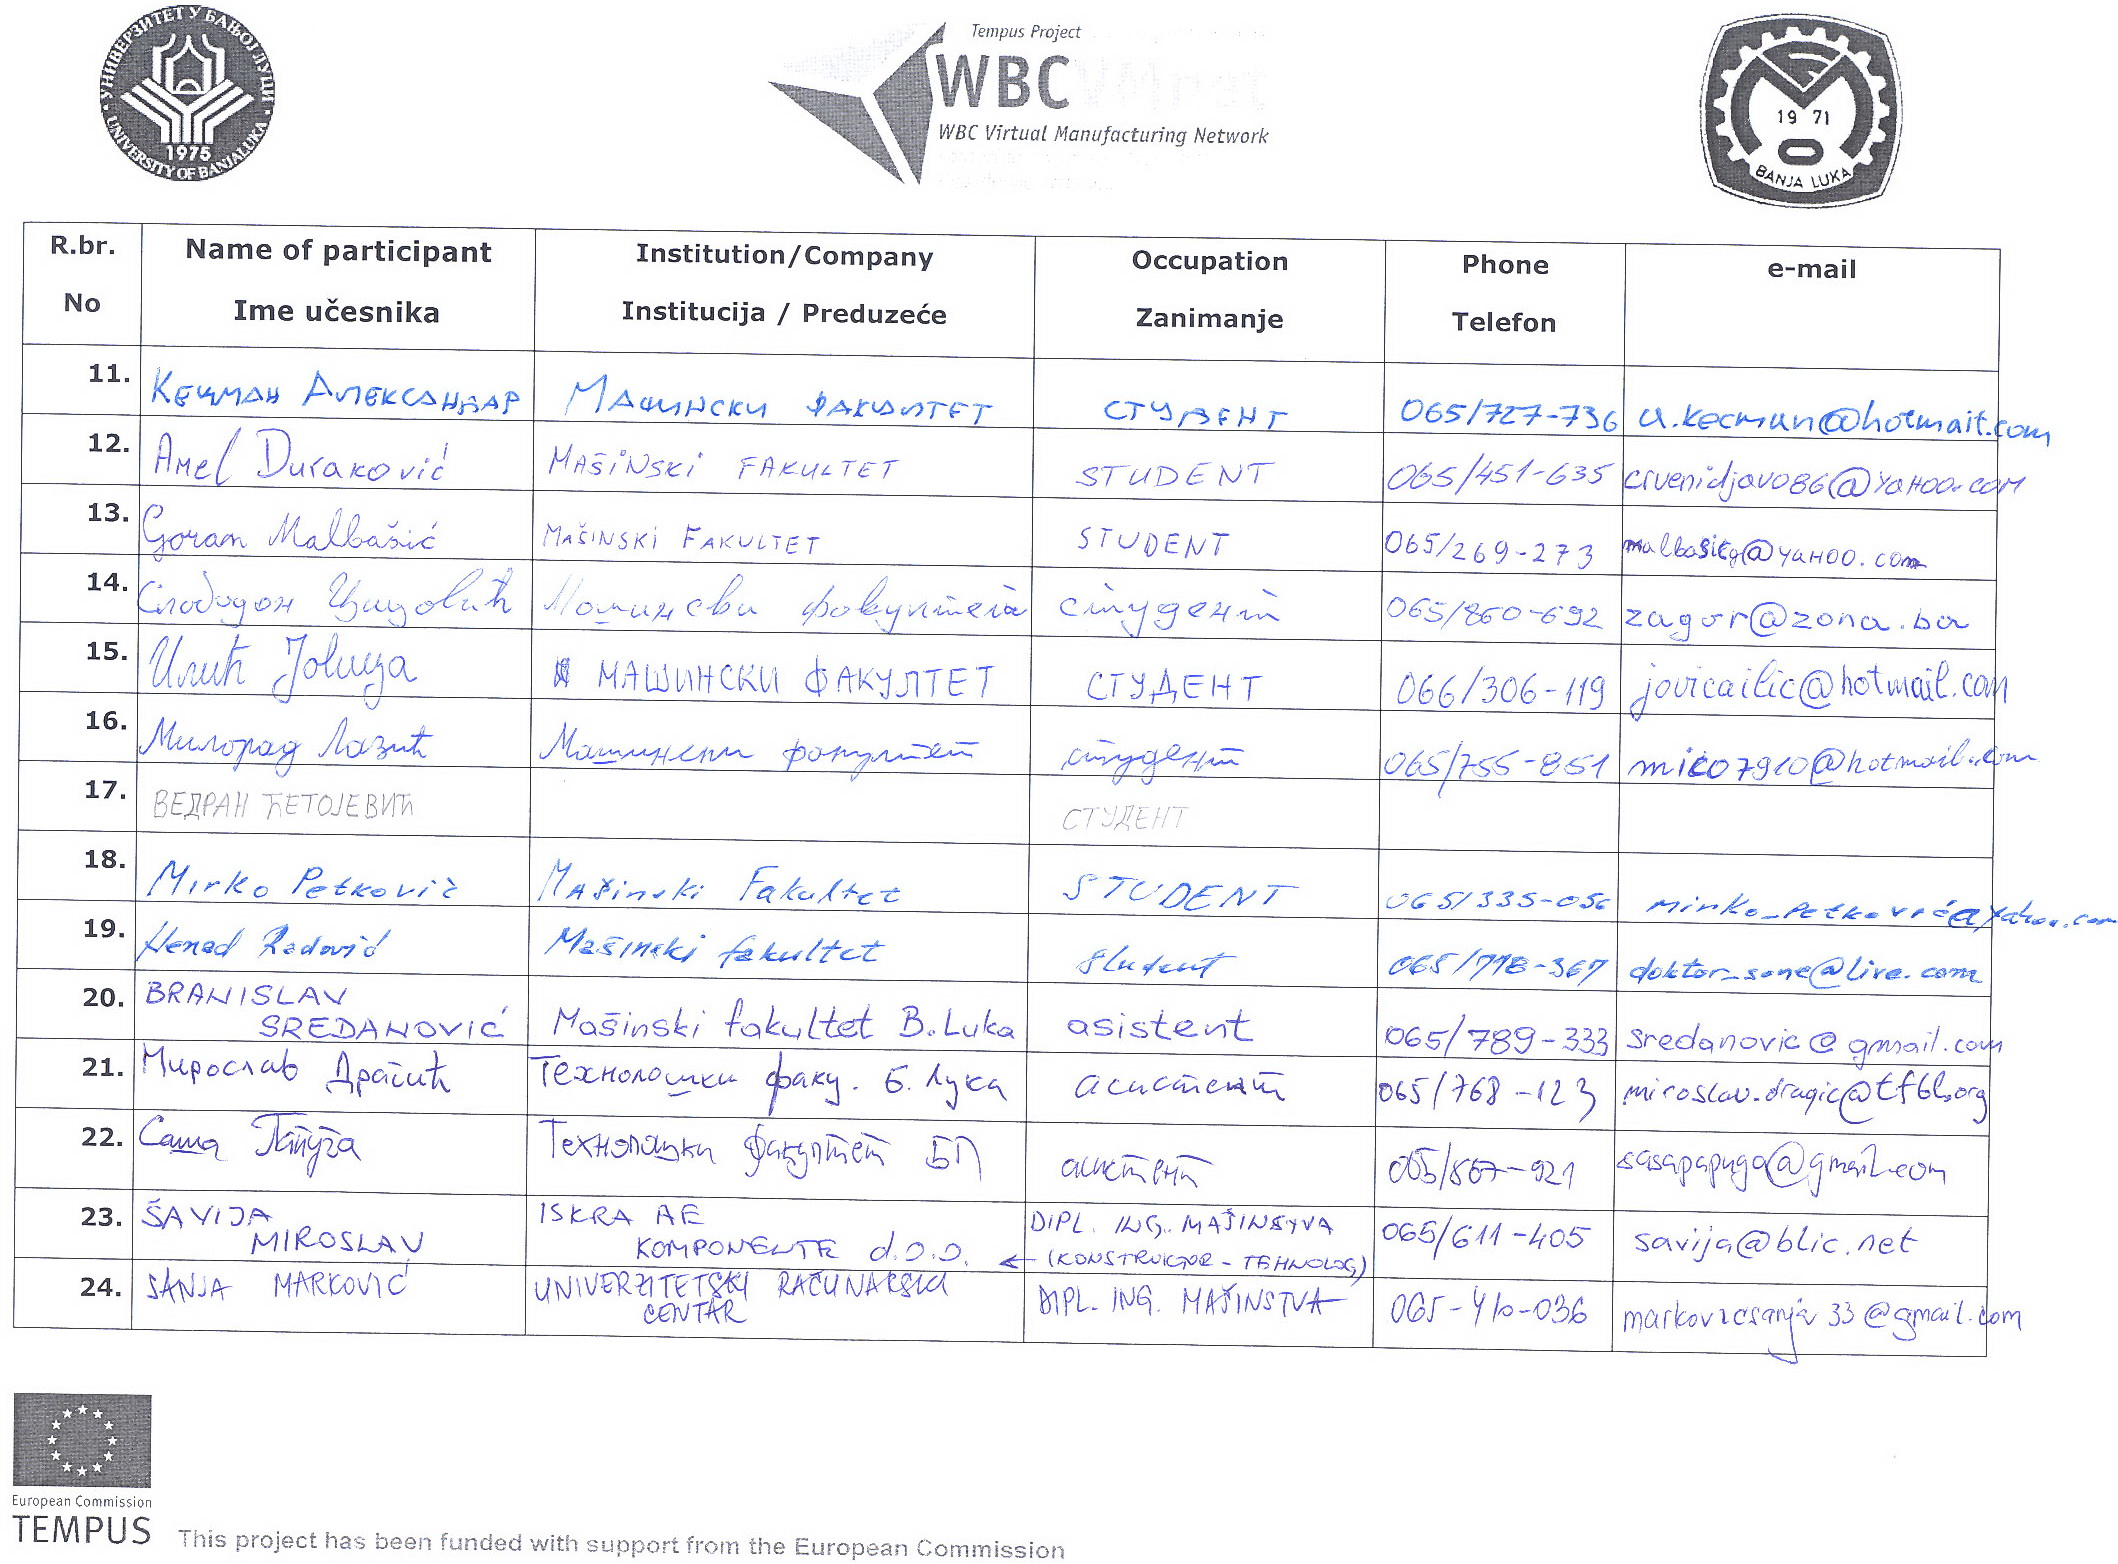 УНИВЕРЗИТЕТ У БАЊОЈ ЛУЦИ
1975
UNIVERSITY OF BANJALUKA
Tempus Project
WBC
WBC Virtual Manufacturing Network
19 71
BANJA LUKA
R.br. Name of participant Institution/Company Occupation Phone e-mail
No Ime učesnika Institucija / Preduzeće Zanimanje Telefon
11. Кецман Александар Машински факултет студент 065/727-736 a.kecman@hotmail.com
12. Amel Duraković MAŠINSKI FAKULTET STUDENT 065/451-635 crvenidjavo86@YAHOO.COM
13. Goran Malbašić MAŠINSKI FAKULTET STUDENT 065/269-273 malbasicg@YAHOO.com
14. Слободан Машински факултет студент 065/860-692 zagor@zona.ba
15. Илић Јовица МАШИНСКИ ФАКУЛТЕТ СТУДЕНТ 066/306-119 jovicailic@hotmail.com
16. Милорад Лазић Машински факултет студент 065/755-851 mico7910@hotmail.com
17. ВЕДРАН ЋЕТОЈЕВИЋ СТУДЕНТ
18. Mirko Petković Mašinski Fakultet STUDENT 065/335-056 mirko_petkovic@yahoo.com
19. Nenad Radović Mašinski fakultet student 065/718-367 doktor_sone@live.com
20. BRANISLAV
SREDANOVIĆ Mašinski fakultet B.Luka asistent 065/789-333 sredanovic@gmail.com
21. Мирослав Драгић Технолошки факу. Б. Лука асистент 065/768-123 miroslav.dragic@tfbl.org
22. Саша Папуга Технолошки факултет БЛ асистент 065/867-921 sasapapuga@gmail.com
23. ŠAVIJA ISKRA AE DIPL. ING. MAŠINSTVA 065/611-405 savija@blic.net
MIROSLAV KOMPONENTE d.o.o. ← (KONSTRUKTOR - TEHNOLOG)
24. SANJA MARKOVIĆ UNIVERZITETSKI RAČUNARSKI DIPL. ING. MAŠINSTVA 065-410-036 markovicsanja33@gmail.com
CENTAR
European Commission
TEMPUS This project has been funded with support from the European Commission